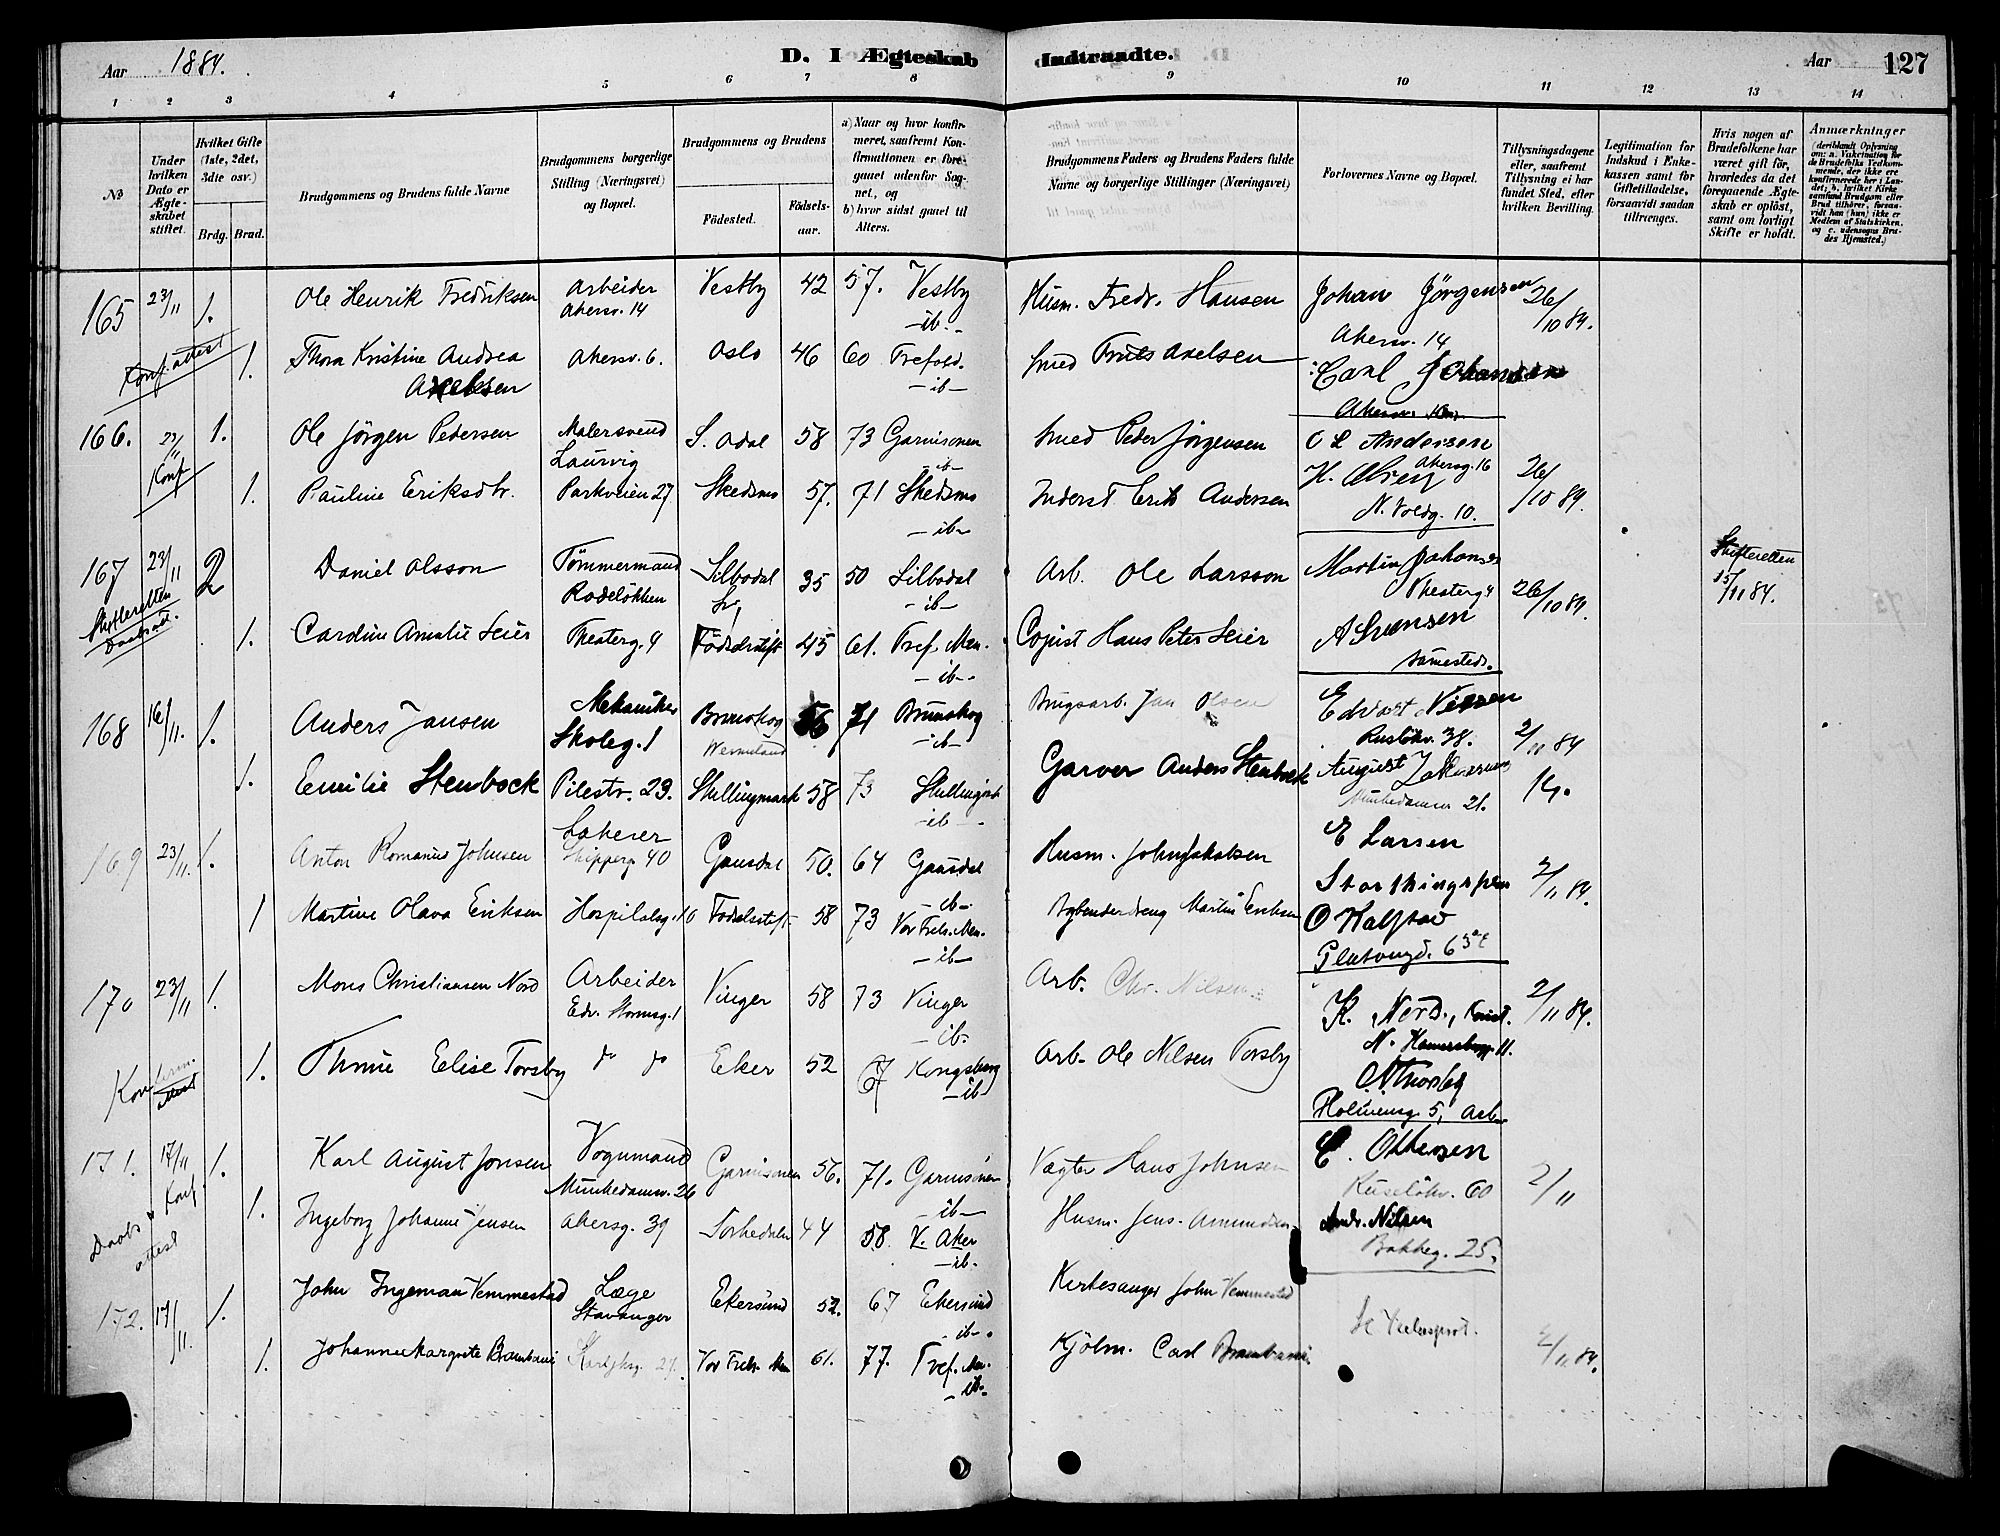 Aar 1884.
D. I Ægteskab Indtraadte.
Aar 127
1 2 3 4 5 6 7 8 9 10 11 12 13 14
№
Under hvilken Dato er Ægteskabet stiftet.
Hvilket Gifte (1ste, 2det, 3die osv.)
Brdg. Brud.
Brudgommens og Brudens fulde Navne
Brudgommens borgerlige Stilling (Næringsvei) og Bopæl.
Brudgommens og Brudens
Födested.
Födselsaar.
a) Naar og hvor konfirmeret, saafremt Konfirmationen er foregaaet udenfor Sognet, og
b) hvor sidst gaaet til Alters.
Brudgommens Faders og Brudens Faders fulde Navne og borgerlige Stillinger (Næringsvei)
Forlovernes Navne og Bopæl.
Tillysningsdagene eller, saafremt Tillysning ei har fundet Sted, efter hvilken Bevilling.
Legitimation for Indskud i Enkekassen samt for Giftetilladelse, forsaavidt saadan tiltrænges.
Hvis nogen af Brudefolkene har været gift för, hvorledes da det foregaaende Ægteskab er oplöst, samt om lovligt Skifte er holdt.
Anmærkninger (deriblandt Oplysning om: a. Vakcination for de Brudefolks Vedkommende, der ikke ere konfirmerede her i Landet; b. hvilket Kirkesamfund Brudgom eller Brud tilhörer, forsaavidt han (hun) ikke er Medlem af Statskirken, og c. udensogns Brudes Hjemsted.)
165 23/11 1. Ole Henrik Fredriksen Arbeider Vestby 42 57. Vestby Husm. Fredr. Hansen Johan Jørgensen 26/10 84.
Akersv. 14 -ib.- Akersv. 14
Konf. attest 1. Thora Kristine Andrea Akersv. 6. Oslo 46 60 Trefold. Smed Truls Axelsen Carl Johansen
Axelsen -ib-
166. 23/11 1. Ole Jörgen Pedersen Malersvend S. Odal 58 73 Garnisonen Smed Peder Jörgensen O L Andersen
Laurvig -ib- Akersg. 16
Konf 1. Pauline Eriksdtr. Parkveien 27 Skedsmo 57. 71 Skedsmo Inderst Erik Andersen 26/10 84.
-ib- N. Voldg. 10.
167 23/11 2 Daniel Olsson Tömmermand Silbodal 35 50 Silbodal Arb. Ole Larsson Martin 26/10 84. Skifteretten 15/11 84.
Rodelökken -ib- Theaterg 4
Skifteretten
Daabsatt. 1. Caroline Amalie Seier Theaterg. 4 Födselsstift 45 61. Tref. Men. Copist Hans Peter Seier A Svensen
-ib-. samesteds.
168 16/11. 1. Anders Jansen Mekaniker Brunskog 56 71 Brunskog Brugsarb. Jan Olsen Edvart Nilsen 2/11 84
Skoleg. 1 Wermeland -ib- Rusløkv. 38.
1. Emilie Stenbock Pilestr. 23. Skillingmark 58 73 Skillingmk Garver Anders Stenbock August
-ib- Munkedamsv 21.
169 23/11. 1. Anton Romanus Johnsen Lakerer Gausdal 50. 64 Gausdal Husm. John Jakobsen E Larsen 2/11 84.
Skipperg. 40 -ib-. Storthingspl
1 Martine Olava Eriksen Hospitalsg. 10 Födselsstift 58 73 Vor Frels. Men. Martin Eriksen O Kalstad
-ib- Platougd.
170 23/11 1. Mons Christiansen Nord Arbeider Vinger 58 73 Vinger Arb. Chr. Nilsen 2/11 84.
Edv. Stormsg. 1 -ib- K. Nord,
Konfirm. attest 1. Elise Torsby do do Eker 52 67 Kongsberg Arb. Ole Nilsen Torsby
-ib- Holmensg. 5, Arb
171. 17/11 1. Karl August Jonsen Vognmand Garnisonen 56. 71. Garnisonen Vægter Hans Johnsen C. Ottersen 2/11
Munkedamsv. 26 -ib- Ruseløkv. 60
Daabs & Konf. attest 1. Ingeborg Johanne Jensen Akersg. 39 44 58. V. Aker Husm. Jens Amundsen Andr. Nilsen
-ib-. Bakkeg. 25.
172. 17/11. 1. John Ingeman Vemmestad Læge Ekersund 52. 67 Ekersund Kirkesanger John Vemmestad
Stavanger -ib-.
1. Johanne Margrete Vor Frels. Men 61. 77. Tref. Men. Kjöbm. Carl 2/11 84.
-ib-